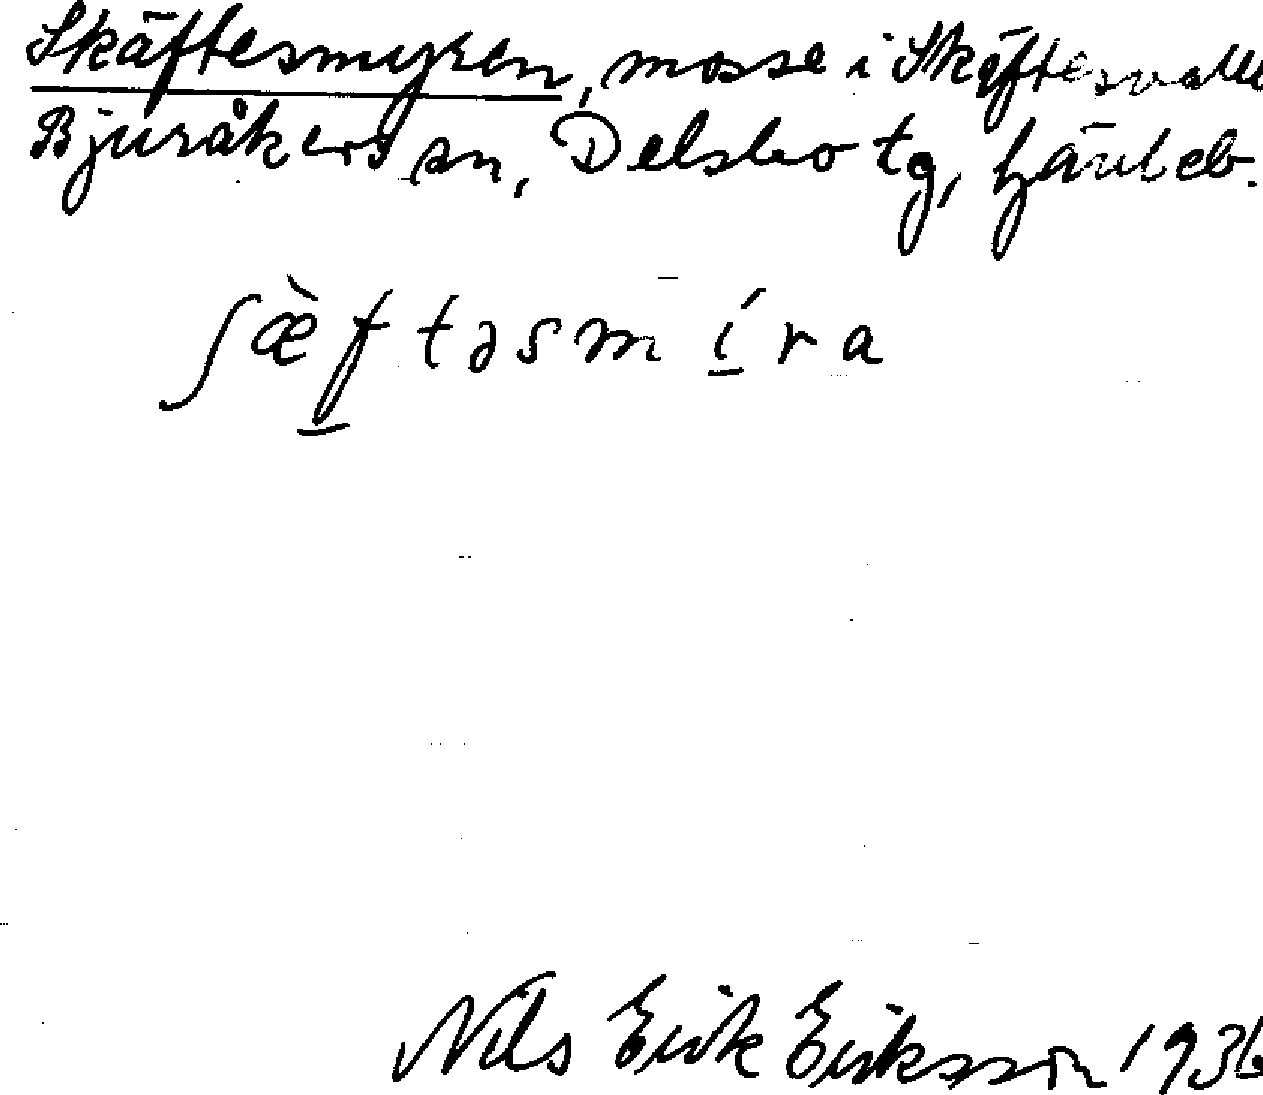 Skäftesmyren, mosse i Skäftesvall
Bjuråkers sn, Delsbo tg, Gävleb.
ʃæ̀f̲təsmí̲ra
Nils Erik Eriksson 1936